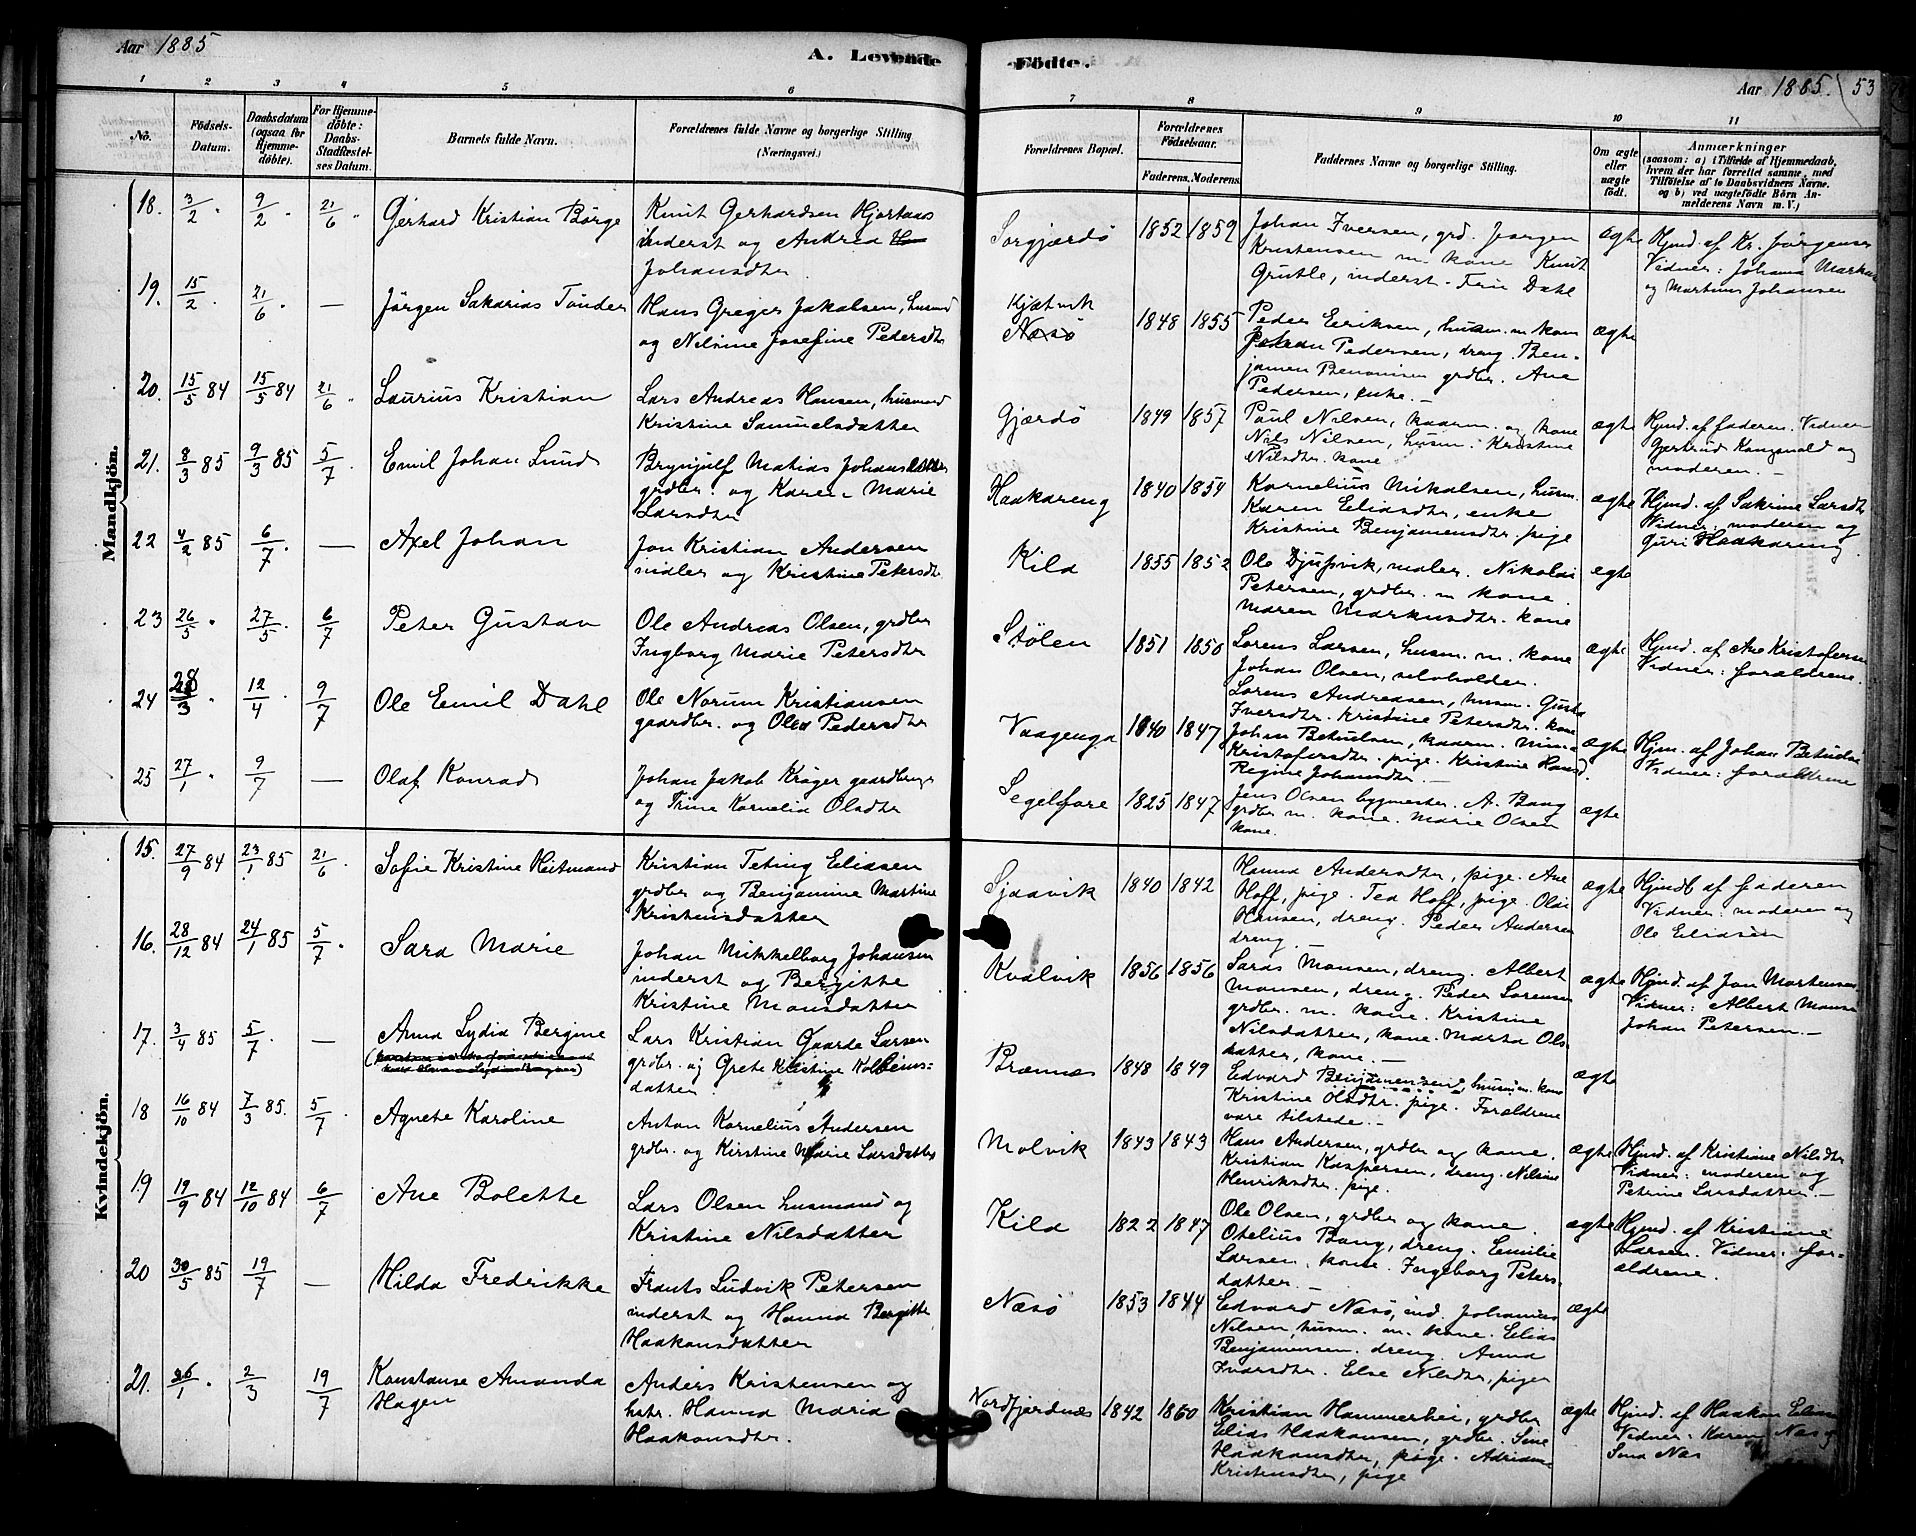 Aar 1885
A. Levende
Födte.
Aar 1885. 53
1 2 3 4 5 6 7 8 9 10 11
No.
Födsels-
Datum.
Daabsdatum
(ogsaa for
Hjemme-
döbte).
For Hjemme-
döbte:
Daabs-
Stadfæstel-
ses Datum.
Barnets fulde Navn.
Forældrenes fulde Navne og borgerlige Stilling
(Næringsvei.)
Forældrenes Bopæl.
Forældrenes
Födselsaar.
Faderens. Moderens.
Faddernes Navne og borgerlige Stilling.
Om ægte
eller
uægte
födt.
Anmærkninger
(saasom: a) i Tilfælde af Hjemmedaab,
hvem der har forrettet samme, med
Tilföielse af to Daabsvidners Navne,
og b) ved uægtefödte Börn An-
melderens Navn m. V.)
Mandkjön.
18. 3/2 . 9/2 . 21/6 . Gerhard Kristian Börge
Knut Gerhardsen Hjortaas
inderst og Andrea
Johansdtr.
Sorgjærdö 1852 1859
Johan Iversen, grd. Jørgen
Kristensen m. kone Knut
Grutle, inderst. Frü Dahl
ægte
Hjmd. af Kr. Jörgensen
Vidner: Johana Markus
og Martinus Johansen
19. 15/2 . 21/6 . — Jörgen Sakarias Tönder
Hans Greger Jakobsen, husmd
og Nilsine Josefine Pedersdtr
Kjætvik
Næsö
1848 1855
Peder Eriksen, husm. m kone
Johan Pedersen, dreng. Ben-
jamen Benonisen grdbr. Ane
Pedersen, enke. —
ægte
20. 15/5 84 15/5 84 21/6 . Laurius Kristian
Lars Andreas Hansen, husmand
Kristine Samuelsdatter
Gjærdö 1849 1857
Paul Nilsen, kaarm. og kone
Nils Nilsen, husm. Kristine
Nilsdtr. kone
ægte
Hjmd. af faderen. Vidner
Gjertrud Kongsvold og
moderen. —
21. 8/3 85 9/3 85 5/7 Emil Johan Lund
Brynjulf Matias Johansen
grdbr. og Karen Marie
Larsdtr
Haakøreng 1840 1854
Kornelius Mikalsen, husm.
Karen Eliasdtr, enke
Kristine Benjamensdtr, pige
ægte
Hjmd. af Sakrine Larsdtr
Vidner: moderen og
Guri Haakøreng
22 4/2 85 6/7 . — Axel Johan
Jon Kristian Andersen
midler og Kristine Petersdtr.
Kila 1855 1852
Ole Djupvik, maler. Nikolai
Petersen, grdbr. m kone.
Maren Markusdtr. kone
ægte
23 26/5 . 27/5 . 6/7 Peter Gustav
Ole Andreas Olsen, grdbr
Ingborg Marie Petersdtr
Stölen 1851 1850
Lorens Larsen, husm. m. kone
Johan Olsen, selvholder.
ægte
Hjmd. af Ane Kristofersen
Vidner: forældrene.
24 28/3 . 12/4 . 9/7 Ole Emil Dahl
Ole Norum Kristiansen
gaardbr. og Olea Pedersdtr
Vaagenga 1840 1847
Lorens Andreasen, husm. Gusta
Iversdtr. Kristine Petersdtr. kone
Johan Betuelsen, kaarm. Nina
Kristofersdtr. pige. Kristine Hans
Regine Johansdtr. —
ægte
Hjm. af Johan Betuelsen
Vidner: forældrene
25 27/1 . 9/7 — Olaf Konrad
Johan Jakob Kröger gaardbruger
og Trine Kornelia Olsdtr
Segelfore 1825 1847
Jens Olsen bygmester. A. Bang
grdbr m. kone. Marie Olsen
kone.
ægte
Kvindekjön.
15. 27/9 84 23/1 85 21/6 . Sofie Kristine Heitmand
Kristian Teting Eliasen
grdbr og Benjamine Martine
Kristensdatter
Sjaavik 1840 1842
Hanna Andersdtr, pige. Ane
Hoff, pige. Tea Hoff, pige. Olai
Hansen, dreng. Peder Andersen
dreng. —
ægte
Hjmdb af faderen
Vidner: moderen og
Ole Eliasen
16. 28/12 84 24/1 85 5/7 . Sara Marie
Johan Mikkelborg Johansen
inderst og Bergitte
Kristine Monsdatter
Kvalvik 1856 1856
Saras Monsen, dreng. Albert
Monsen, dreng. Peder Lorensen
grdbr. m. kone. Kristine
Nilsdatter, kone. Marta Ols-
datter, kone. —
ægte
Hjmd. af Jon Mortensen
Vidner: Albert Monsen
Johan Petersen. —
17. 3/4 85 5/7 — Anna Lydia Bergine
Lars Kristian Gaarde Larsen
grdbr. og Grete Kristine Kolbeins-
datter.
Brænnes 1848 1849
Edvard Benjamensen, husm. m. kone
Kristine Olsdtr. pige. Forældrene
vare tilstede. —
ægte
18 16/10 84 7/3 85. 5/7 Agnete Karoline
Anton Kornelius Andersen
grdbr. og Kirstine Marie Larsdatter
Molvik 1843 1843
Hans Andersen, grdbr og kone.
Kristian Kaspersen, dreng. Nilsine
Henriksdtr. pige.
ægte
Hjmd. af Kristiane Nilsdtr
Vidner: moderen og
Petrine Larsdatter. —
19 19/9 84 12/10 84 6/7 Ane Bolette
Lars Olsen husmand og
Kristine Nilsdatter
Kila 1822 1847
Ole Olsen, grdbr og kone
Otelius Bang, dreng. Emilie
Larsen, kone. Ingeborg Peters-
datter. —
ægte
Hjmd. af Kristiane
Larsen. Vidner: for-
ældrene.
20 30/5 85 19/7 — Hilda Fredrikke
Frants Ludvik Petersen
inderst og Hanna Bergitte
Haakonsdatter
Næsö 1853 1844
Edvard Næsö, ind. Johannes
Nilsen, husm. m. kone. Elias
Benjamensen. dreng. Anna
Ivarsdtr. Else Nilsdtr, piger
ægte
21. 26/1 . 2/3 19/7 Konstanse Amanda
Hagen
Anders Kristensen og
hstr. Hanna Maria
Haakonsdtr.
Nordfjordnæs 1842 1860
Kristian Hammerhei, grdbr
Elias Haakonsen, grdbr. Sine
Haakonsdtr, pige. Adriane
Kristensdtr, pige
ægte
Hjmd. af Haakon Eliassen
Vidner: Karen Næs og
Sina Næs